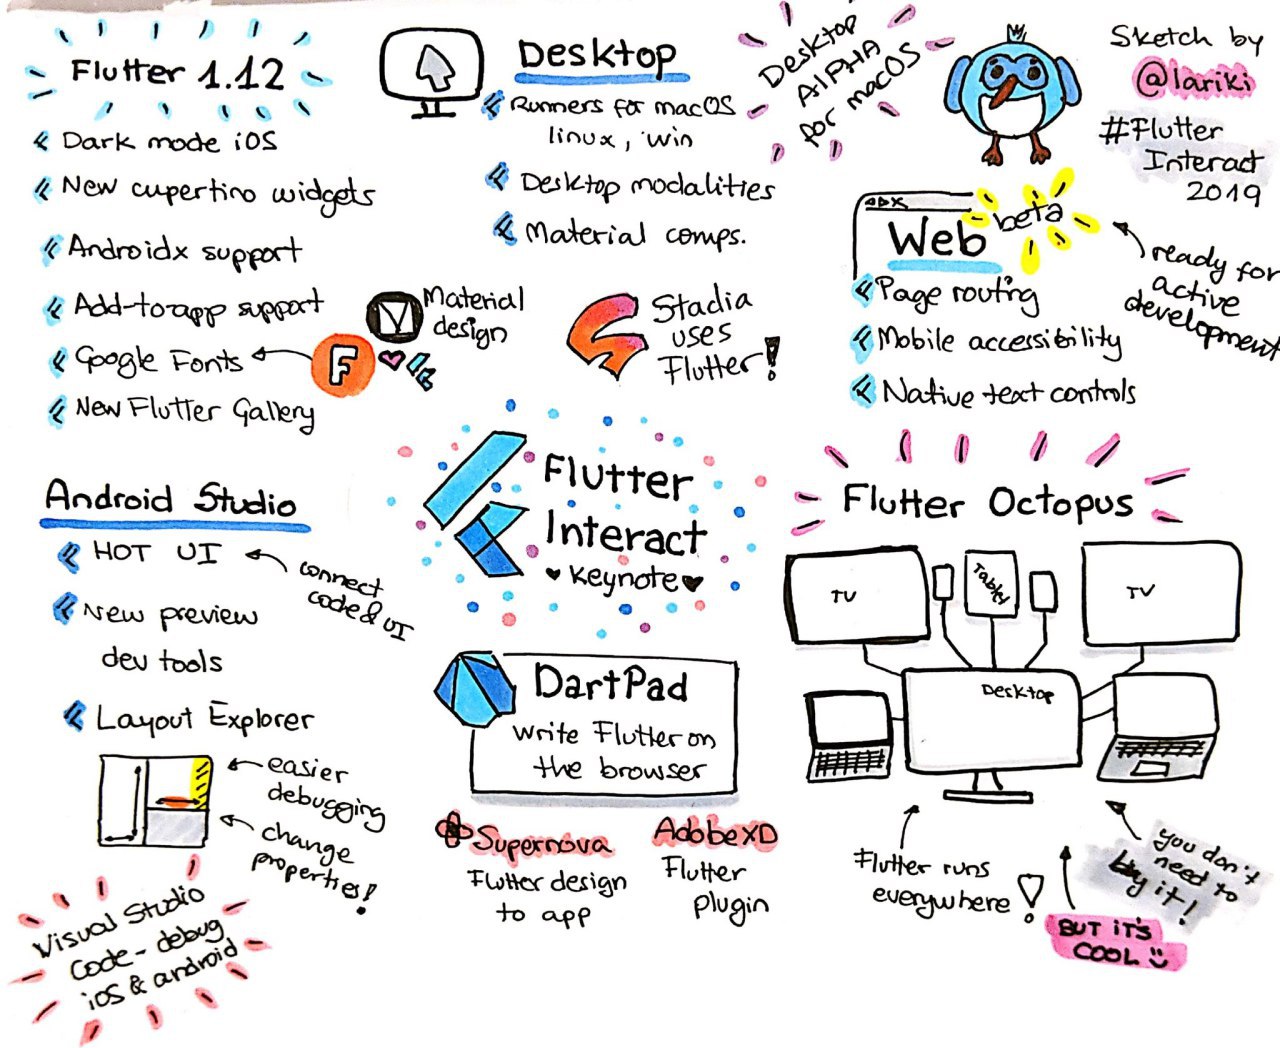 Flutter 1.12
Dark mode iOS
New cupertino widgets
Androidx support
Add-to-app support
Google Fonts
New Flutter Gallery
F
Material
design
Desktop
Runners for macOS
linux, win
Desktop modalities
Material comps.
Desktop
AlPHA
for macOS
Sketch by
@lariki
#Flutter
Interact
2019
Web
beta
ready for
active
development
Page routing
Mobile accessibility
Native text controls
Stadia
uses
Flutter!
Flutter
Interact
Keynote
Android Studio
HOT UI
connect
code & UI
New preview
dev tools
Layout Explorer
easier
debugging
change
properties!
Visual Studio
Code - debug
iOS & android
DartPad
write Flutter on
the browser
Supernova
Flutter design
to app
AdobeXD
Flutter
plugin
Flutter Octopus
TV
Tablet
TV
Desktop
Flutter runs
everywhere!
you don't
need to
buy it!
BUT iT'S
COOL